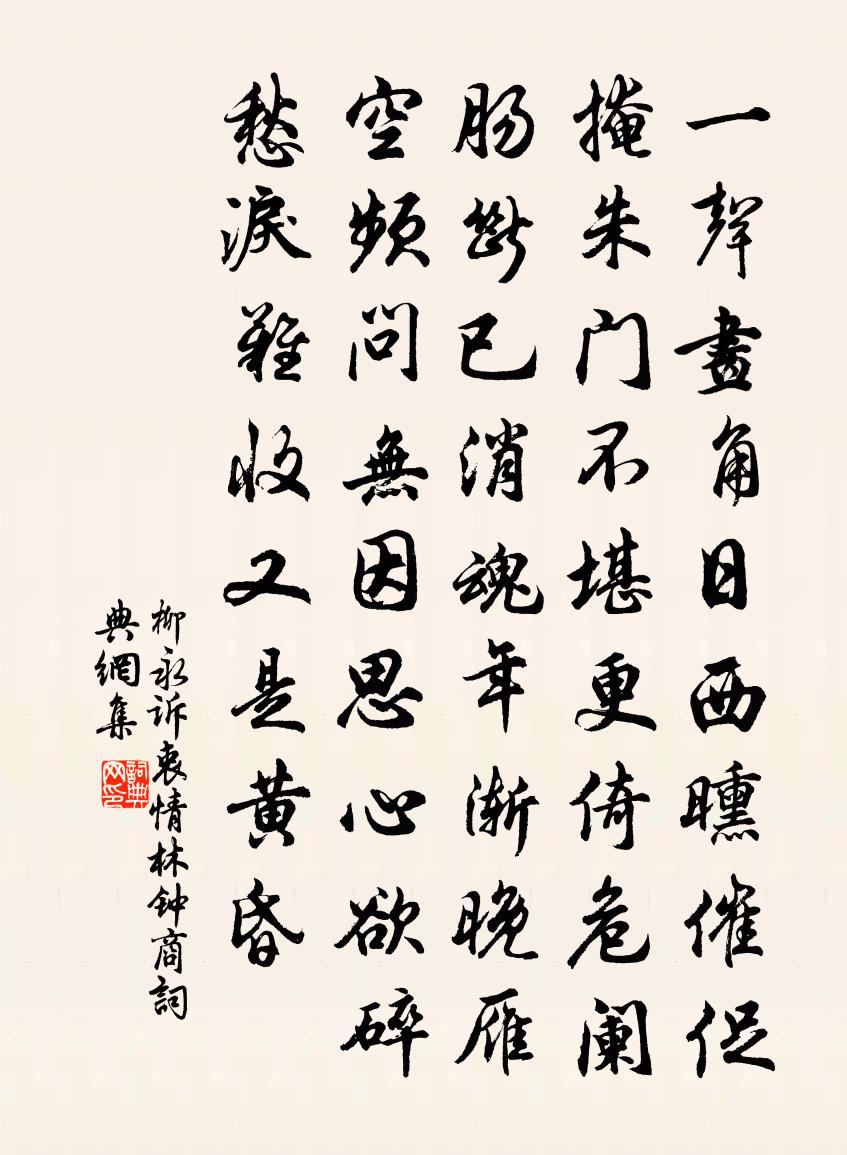 一聲畫角日西曛催促
掩朱门不堪更倚危阑
肠斷已消魂年渐晚雁
空频问無因思心欲碎
愁淚難收又是黄昏
柳永诉衷情林钟商詞
典網集
詞典網印